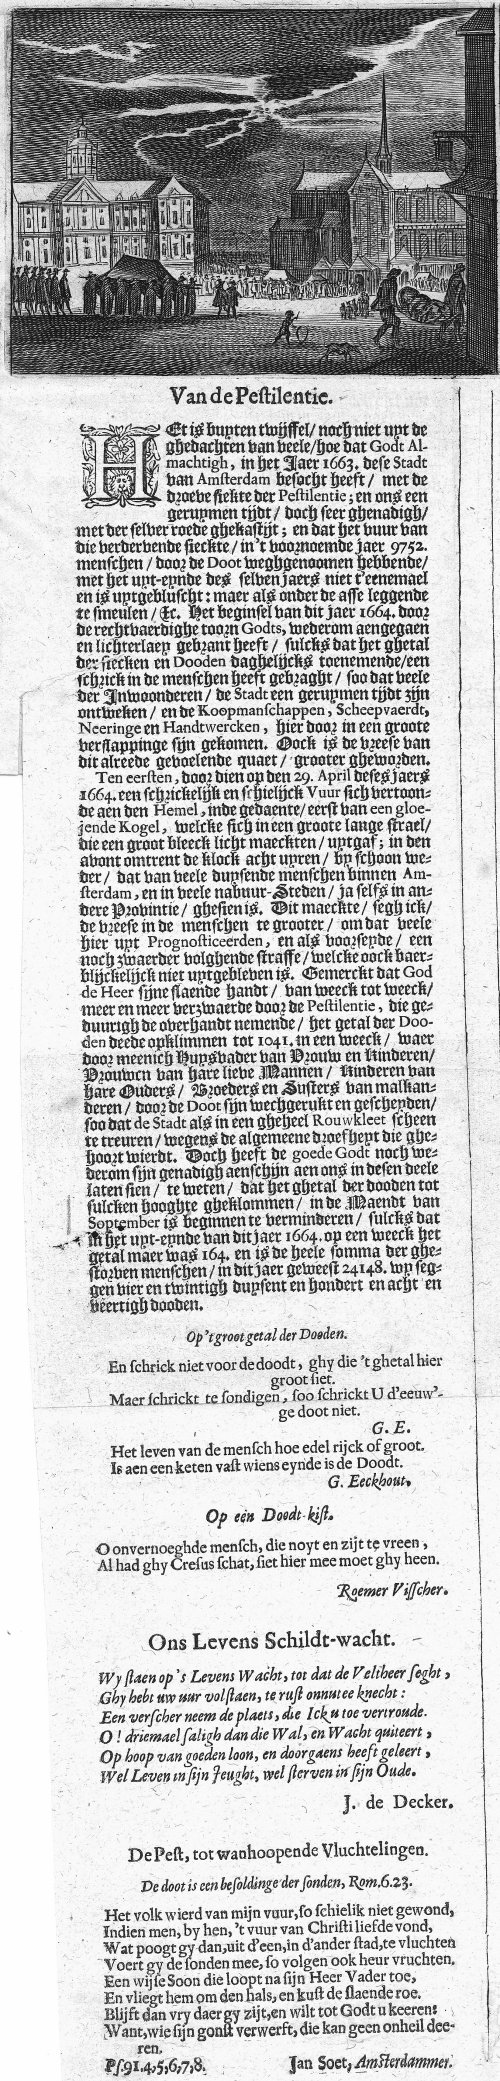 Van de Pestilentie.
HEt is buyten twijffel/ noch niet uyt de
ghedachten van veele/hoe dat Godt Al-
machtigh, in het Jaer 1663. dese Stadt
van Amsterdam besocht heeft / met de
droeve siekte der Pestilentie; en ons een
geruymen tijdt / doch seer ghenadigh/
met der selver roede ghekastijt; en dat het vuur van
die verdervende sieckte/ in 't voornoemde jaer 9752.
menschen / door de Doot weghgenoomen hebbende/
met het uyt-eynde des selven jaers niet t'eenemael
en is uytgebluscht: maer als onder de asse leggende
te smeulen / &c. Het beginsel van dit jaer 1664. door
de rechtvaerdighe toorn Godts, wederom aengegaen
en lichterlaey gebrant heeft / sulcks dat het ghetal
der siecken en Dooden daghelijcks toenemende/een
schrick in de menschen heeft gebraght / soo dat veele
der Inwoonderen / de Stadt een geruymen tijdt zijn
ontweken / en de Koopmanschappen, Scheepvaerdt,
Neeringe en Handtwercken, hier door in een groote
verslappinge sijn gekomen. Oock is de vreese van
dit alreede gevoelende quaet / grooter gheworden.
Ten eersten, door dien op den 29. April deses jaers
1664. een schrickelijk en schielijck Vuur sich vertoon-
de aen den Hemel, inde gedaente/ eerst van een gloe-
jende Kogel, welcke sich in een groote lange strael/
die een groot bleeck licht maeckten/ uytgaf; in den
avont omtrent de klock acht uyren/ by schoon we-
der/ dat van veele duysende menschen binnen Am-
sterdam, en in veele nabuur-Steden/ ja selfs in an-
dere Provintie/ ghesien is. Dit maeckte/ segh ick/
de vreese in de menschen te grooter/ om dat veele
hier uyt Prognosticeerden, en als voorseyde/ een
noch zwaerder volghende straffe/welcke oock baer-
blijckelijck niet uytgebleven is. Gemerckt dat God
de Heer sijne slaende handt/ van weeck tot weeck/
meer en meer verzwaerde door de Pestilentie, die ge-
duurigh de overhandt nemende/ het getal der Doo-
den deede opklimmen tot 1041. in een weeck/ waer
door meenich Huysvader van Vrouw en Kinderen/
Vrouwen van hare lieve Mannen/ Kinderen van
hare Ouders/ Broeders en Susters van malkan-
deren/ door de Doot sijn wechgerukt en gescheyden/
soo dat de Stadt als in een gheheel Rouwkleet scheen
te treuren/ wegens de algemeene droefheyt die ghe-
hoort wierdt. Doch heeft de goede Godt noch we-
derom sijn genadigh aenschijn aen ons in desen deele
laten sien/ te weten/ dat het ghetal der dooden tot
sulcken hooghte gheklommen/ in de Maendt van
September is beginnen te verminderen/ sulcks dat
in het uyt-eynde van dit jaer 1664. op een weeck het
getal maer was 164. en is de heele somma der ghe-
storven menschen/ in dit jaer geweest 24148. wy seg-
gen vier en twintigh duysent en hondert en acht en
veertigh dooden.
Op 't groot getal der Dooden.
En schrick niet voor de doodt, ghy die 't ghetal hier
groot siet.
Maer schrickt te sondigen, soo schrickt U d'eeuw'-
ge doot niet.
G. E.
Het leven van de mensch hoe edel rijck of groot.
Is aen een keten vast wiens eynde is de Doodt.
G. Eeckhout.
Op een Doodt-kist.
O onvernoeghde mensch, die noyt en zijt te vreen,
Al had ghy Cresus schat, siet hier mee moet ghy heen.
Roemer Visscher.
Ons Levens Schildt-wacht.
Wy staen op 's Levens Wacht, tot dat de Veltheer seght,
Ghy hebt uw uur volstaen, te rust onnutte knecht:
Een verscher neem de plaets, die Ick u toe vertroude.
O! driemael saligh dan die Wal, en Wacht quiteert,
Op hoop van goeden loon, en doorgaens heeft geleert,
Wel Leven in sijn Jeught, wel sterven in sijn Oude.
J. de Decker.
De Pest, tot wanhoopende Vluchtelingen.
De doot is een besoldinge der sonden, Rom. 6. 23.
Het volk wierd van mijn vuur, so schielik niet gewond,
Indien men, by hen, 't vuur van Christi liefde vond,
Wat poogt gy dan, uit d'een, in d'ander stad, te vluchten
Voert gy de sonden mee, so volgen ook heur vruchten.
Een wijse Soon die loopt na sijn Heer Vader toe,
En vliegt hem om den hals, en kust de slaende roe.
Blijft dan vry daer gy zijt, en wilt tot Godt u keeren:
Want, wie sijn gonst verwerft, die kan geen onheil dee-
ren.
Ps. 91. 4, 5, 6, 7, 8. Jan Soet, Amsterdammer.